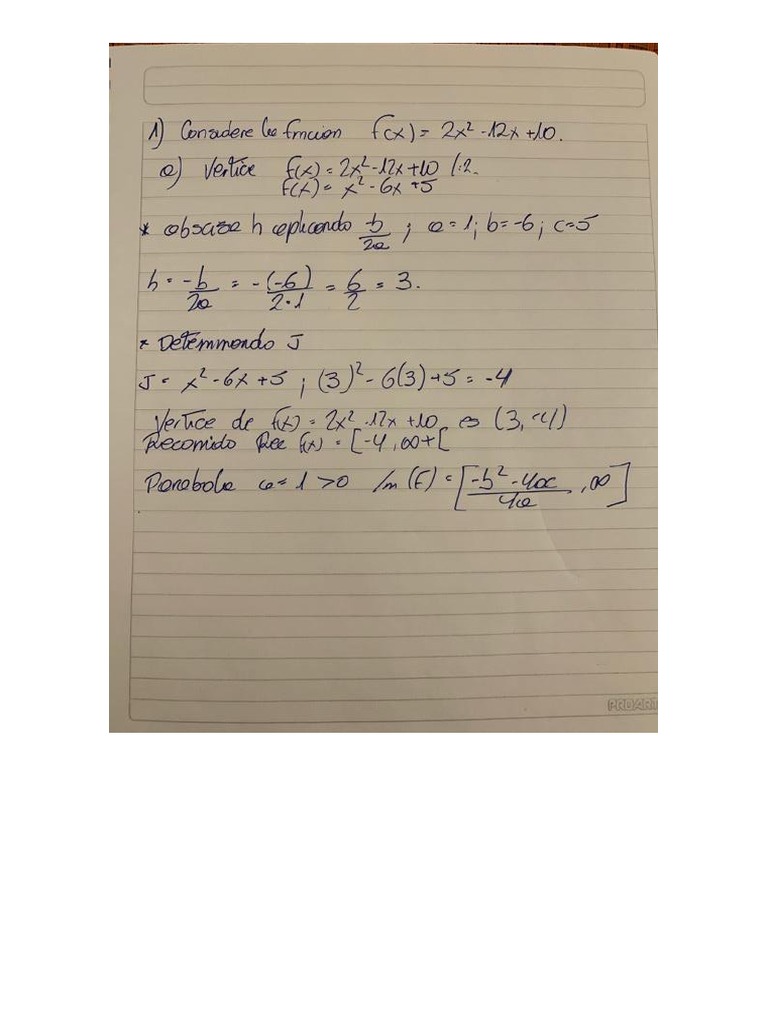 1) Considere la función f(x) = 2x² - 12x + 10.
a) Vertice f(x) = 2x² - 12x + 10 /:2.
f(x) = x² - 6x + 5
* absciza h aplicando b/2a ; a = 1; b = -6; c = 5
h = -b/2a = -(-6)/2·1 = 6/2 = 3.
* Determinando J
J = x² - 6x + 5 ; (3)² - 6(3) + 5 = -4
Vertice de f(x) = 2x² - 12x + 10 es (3, -4)
Recorrido Rec f(x) = [-4, ∞+[
Parabola a = 1 > 0 Im(f) = [-b² - 4ac/4a , ∞]
PROARTE